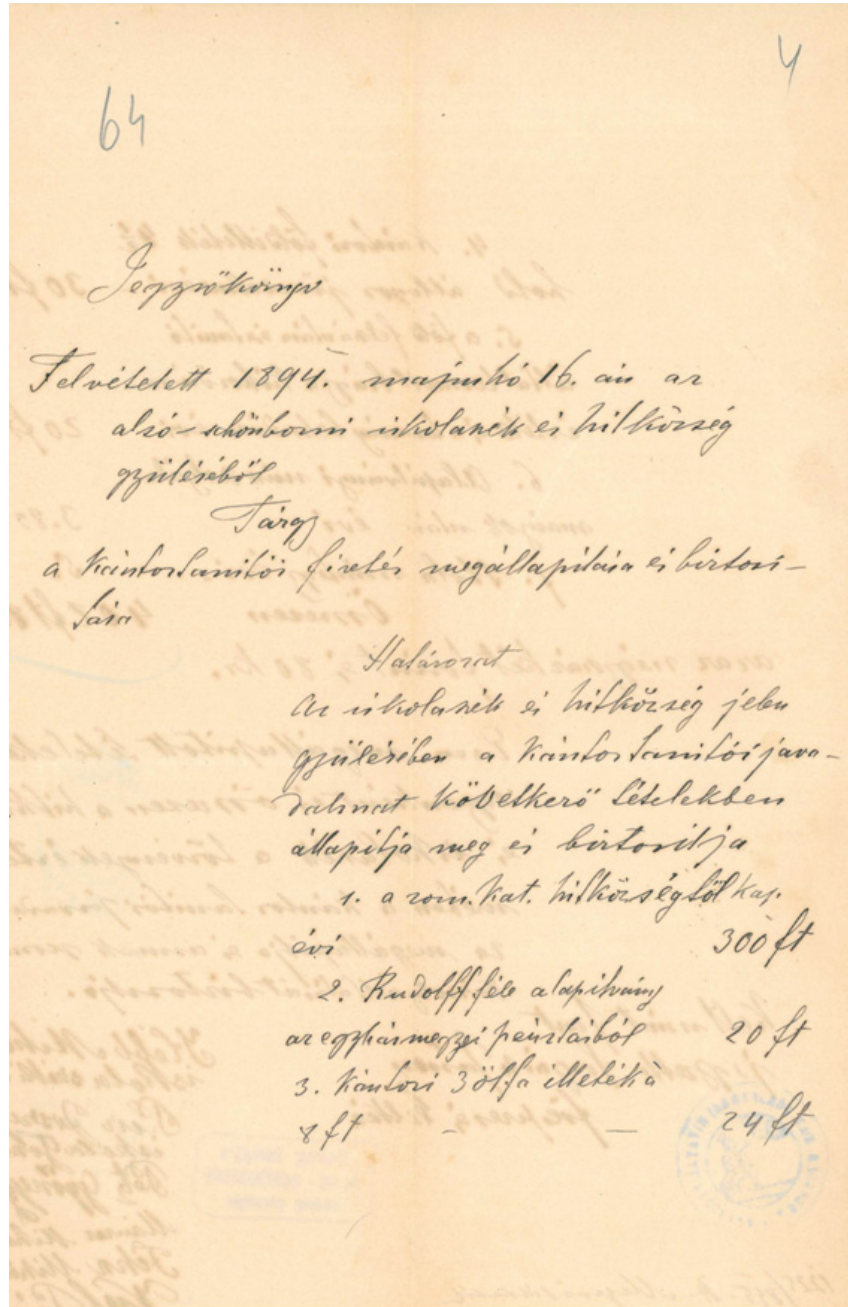 64
4
Jegyzőkönyv
Felvételett 1894. majushó 16. án az
alsó-schönborni iskolaszék és hitközség
gyüléséből
Tárgy
a Kántortanitói fizetés megállapitása és biztosi-
tása
Határozat
Az iskolaszék és hitközség jelen
gyülésében a Kántortanitói java-
dalmat következő tételekben
állapitja meg és biztositja
1. a rom. kat. hitközségtől kap.
évi 300 ft
2. Rudolff féle alapitvány
az egyházmegyei pénztáiból 20 ft
3. Kántori 3 ölfa illeték à
8 ft — — 24 ft